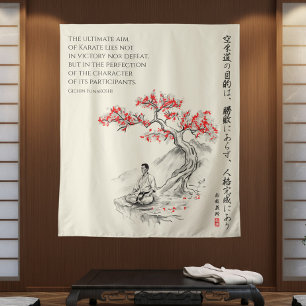 THE ULTIMATE AIM
OF KARATE LIES NOT
IN VICTORY NOR DEFEAT,
BUT IN THE PERFECTION
OF THE CHARACTER
OF ITS PARTICIPANTS.
GICHIN FUNAKOSHI
空手道の目的は、勝敗にあらず、人格完成にあり